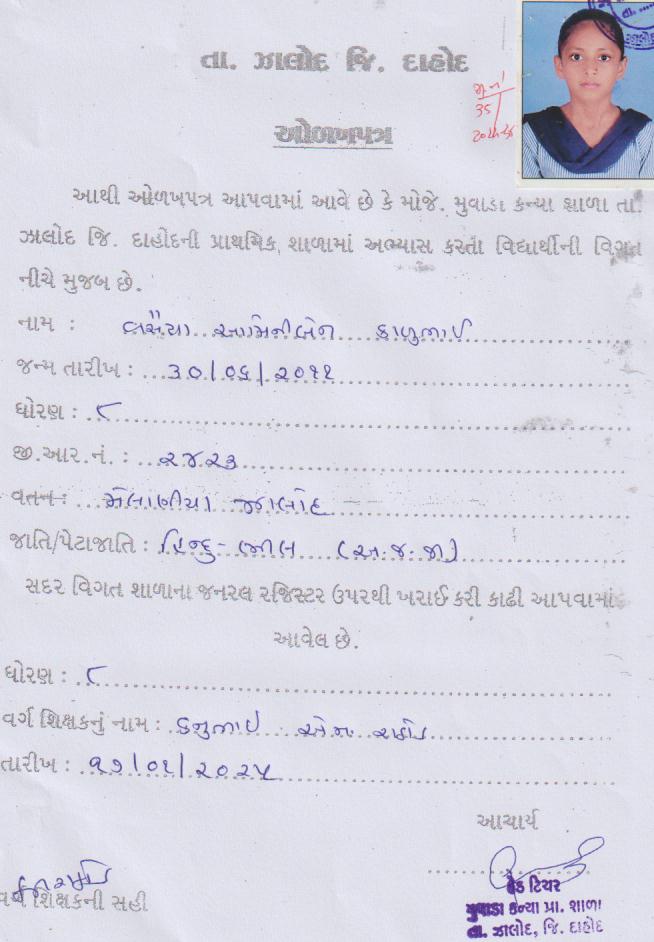 તા. ઝાલોદ જિ. દાહોદ
35
ઓળખપત્ર
આથી ઓળખપત્ર આપવામાં આવે છે કે મોજે. મુવાડા કન્યા શાળા તા.
ઝાલોદ જિ. દાહોદની પ્રાથમિક શાળામાં અભ્યાસ કરતા વિદ્યાર્થીની વિગત
નીચે મુજબ છે.
નામ : આમિનીબેન કાળુભાઈ
જન્મ તારીખ : ૩૦/૦૬/૨૦૧૧
ધોરણ : ૮
જી.આર.નં. : ૨૪૨૩
વતન : મેલાણીયા જાલોદ
જાતિ/પેટાજાતિ : હિન્દુ-ભીલ (અ.જ.જા)
સદર વિગત શાળાના જનરલ રજિસ્ટર ઉપરથી ખરાઈ કરી કાઢી આપવામાં
આવેલ છે.
ધોરણ : ૮
વર્ગ શિક્ષકનું નામ : કનુભાઈ એમ રાઠોડ
તારીખ : ૧૭/૦૧/૨૦૨૫
આચાર્ય
હેડ ટિચર
વર્ગ શિક્ષકની સહી
મુવાડા કન્યા પ્રા. શાળા
તા. ઝાલોદ, જિ. દાહોદ